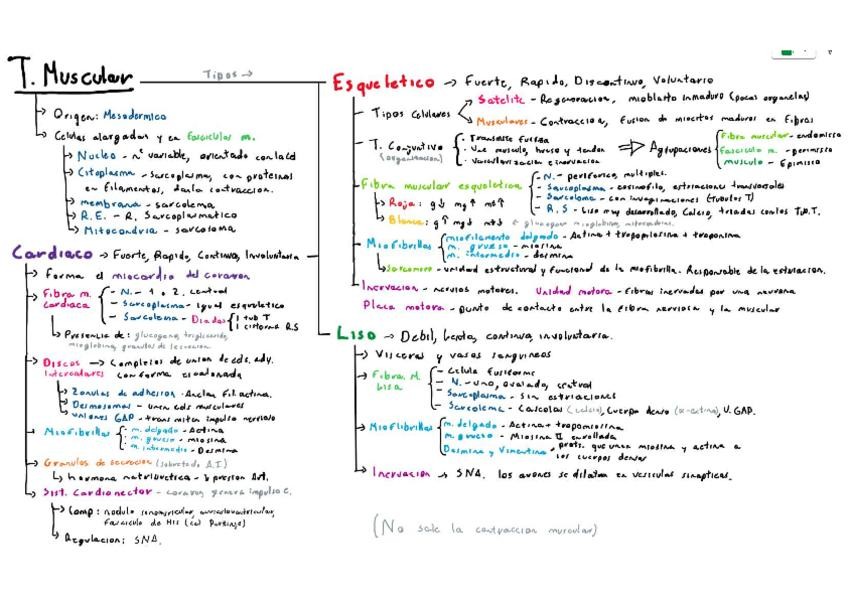 T. Muscular
Tipos →
→ Origen: Mesodermico
→ Celulas alargadas y en fasciculos m.
→ Nucleo - nº variable, orientado con la cd
→ Citoplasma - sarcoplasma, con proteinas
en filamentos, dan la contraccion.
→ membrana - sarcolema
→ R.E. - R. Sarcoplasmatico
→ Mitocondria - sarcosoma
Cardiaco → Fuerte, Rapido, Continuo, Involuntario
→ Forma el miocardio del corazon
→ Fibra m. cardiaca
- N. - 1 o 2. central
- Sarcoplasma - igual esqueletico
- Sarcolema - Diadas
1 tub T
1 cisterna R.S
→ Presencia de: glucogeno, trigliceridos,
mioglobina, granulos de secrecion
→ Discos Intercalares → Complejos de union de cds. ady.
con forma escalonada
→ Zonulas de adhesion - Anclan Fil. actina.
→ Desmosomas - unen cels musculares
→ uniones GAP - transmiten impulso nervioso
→ Miofibrillas
- m. delgado - Actina
- m. grueso - miosina
- m. intermedio - Desmina
→ Granulos de secrecion (sobretodo A.I)
→ hormona natriuretica - ↓ presion Art.
→ Sist. Cardionector - corazon genera impulso c.
→ Comp: nodulo sinoauricular, auriculoventricular,
fasciculo de His (cel Purkinje)
→ Regulacion: SNA.
Esqueletico → Fuerte, Rapido, Discontinuo, Voluntario
Tipos Celulares
Satelite - Regeneracion, mioblasto inmaduro (pocas organelas)
Musculares - Contraccion, fusion de miocitos maduros en Fibras
T. Conjuntivo (organizacion)
- Transmite fuerza
- Une musculo, hueso y tendon
- Vascularizacion e inervacion
⇒ Agrupaciones
Fibra muscular - endomisio
Fasciculo m. - perimisio
musculo - Epimisio
Fibra muscular esqueletica
- N. - perifericos, multiples.
- Sarcoplasma - eosinofilo, estriaciones transversales
- Sarcolema - con invaginaciones (Tubulos T)
- R.S - Liso muy desarrollado, Calcio, triadas con los Tub. T.
→ Roja: g↓ mg↑ mt↑
→ Blanca: g↑ mg↓ mt↓
→ Miofibrillas
miofilamento delgado - Actina + tropomiosina + troponina
m. grueso - miosina
m. intermedio - desmina
→ Sarcomero - unidad estructural y funcional de la miofibrilla. Responsable de la estriacion.
Inervacion - nervios motores. Unidad motora - fibras inervadas por una neurona
Placa motora - punto de contacto entre la fibra nerviosa y la muscular
Liso → Debil, lenta, continua, involuntaria.
→ Visceras y vasos sanguineos
→ Fibra M. Lisa
- Celula fusiforme
- N. - uno, ovalado, central
- Sarcoplasma - Sin estriaciones
- Sarcolema - Caveolas (calcio), Cuerpo denso (α-actina), U. GAP.
→ Miofibrillas
m. delgado - Actina + tropomiosina
m. grueso - Miosina II enrollada
Desmina y Vimentina - prots. que unen miosina y actina a
los cuerpos densos
→ Inervacion → SNA. los axones se dilatan en vesiculas sinapticas.
(No sale la contraccion muscular)